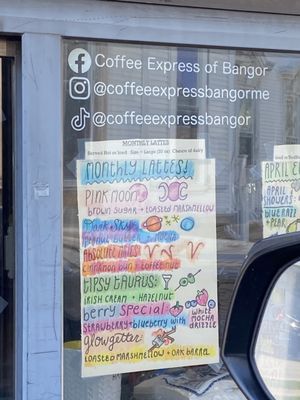 Coffee Express of Bangor
@coffeeexpressbangorme
@coffeeexpressbangor
MONTHLY LATTES
Served Hot or Iced Size - Large (20 oz) Choice of dairy
MONTHLY LATTES!
PINK MOON
BROWN SUGAR + TOASTED MARSHMALLOW
DARK SKY
PEANUT BUTTER +
ABSOLUTE
CINNAMON BUN + TOFFEE NUT
TIPSY TAURUS:
IRISH CREAM + HAZELNUT
berry SPECIAL
STRAWBERRY + BLUEBERRY WITH
WHITE
MOCHA
DRIZZLE
glowgetter
TOASTED MARSHMALLOW + OAK BARREL
APRIL
APRIL
SHOWERS
BLUE RAZZ
+ PEAR